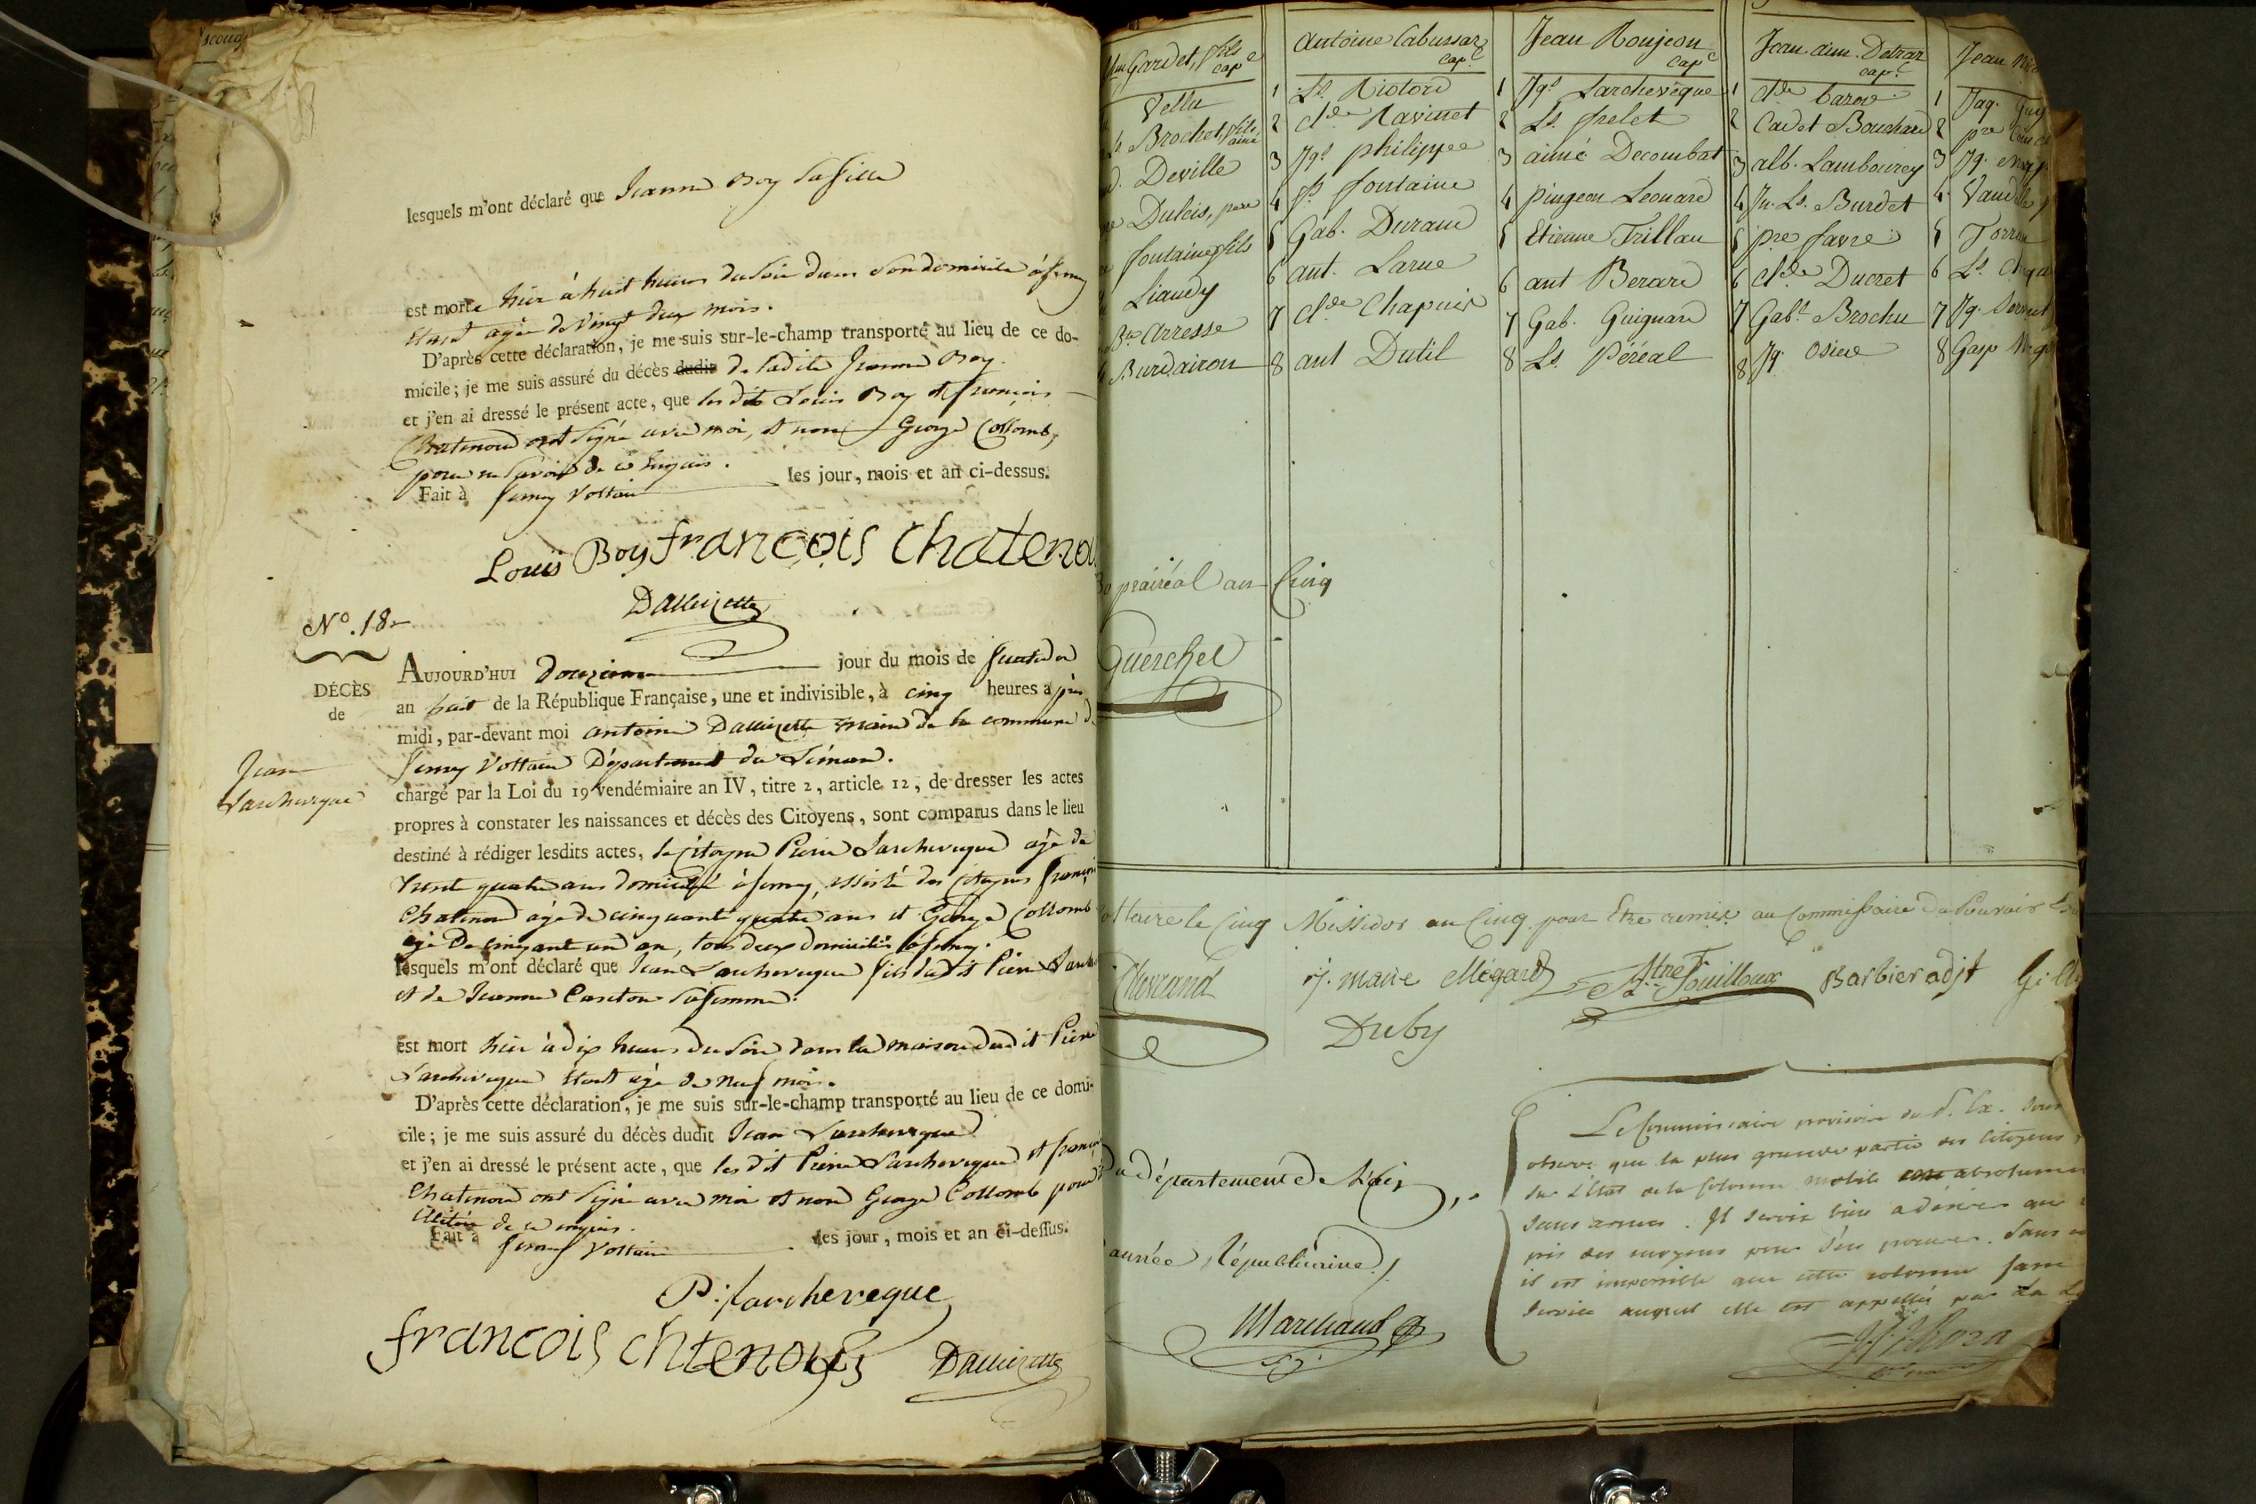 lesquels m'ont déclaré que Jeanne Boy sa fille
est morte hier à huit heures du soir dans son domicile à ferney
étant agée de vingt deux mois.
D'après cette déclaration, je me suis sur-le-champ transporté au lieu de ce do-
micile; je me suis assuré du décès dudit de ladite Jeanne Boy
et j'en ai dressé le présent acte, que lesdits Louis Boy et françois
Chatenoud ont signé avec moi, et non George Collomb,
pour ne savoir de ce enquis.
Fait à ferney Voltaire les jour, mois et an ci-dessus.
Louis Boy françois Chatenou
Dallizette
N°. 18
DÉCÈS
de
Jean
Larcheveque
AUJOURD'HUI douzieme jour du mois de
an huit de la République Française, une et indivisible, à cinq heures après
midi, par-devant moi antoine Dallizette maire de la commune de
ferney Voltaire Département du Léman.
chargé par la Loi du 19 vendémiaire an IV, titre 2, article 12, de dresser les actes
propres à constater les naissances et décès des Citoyens, sont comparus dans le lieu
destiné à rédiger lesdits actes, le Citoyen Pierre Larcheveque agé de
trente quatre ans domicilié à ferney, assisté des Citoyens françois
Chatenoud agé de cinquante quatre ans et George Collomb
agé de cinquante un an, tous deux domiciliés à ferney.
lesquels m'ont déclaré que Jean Larcheveque fils dudit Pierre Larche
et de Jeanne sa femme.
est mort hier à dix heures du soir dans la maison dudit Pierre
Larcheveque étant agé de neuf mois.
D'après cette déclaration, je me suis sur-le-champ transporté au lieu de ce domi-
cile; je me suis assuré du décès dudit Jean Larcheveque
et j'en ai dressé le présent acte, que lesdits Pierre Larcheveque et franço
Chatenoud ont signé avec moi et non George Collomb pour
de ce enquis.
Fait à ferney Voltaire les jour, mois et an ci-dessus.
P: larcheveque
francois chtenoux
Dallizette
Gardet, fils cap.e
Vellu
Brochet, fils ainé
Deville
Dulcis, pere
fontaine fils
Liaudy
Arresse
Burdairon
antoine Cabussar cap.e
1 Ls. Riotord
2 Cl.de Ravinet
3 Jqs philippe
4 fs. fontaine
5 Gab. Durand
6 ant. Larue
7 Cl.de Chapuis
8 ant Dutil
Jean Roujeon cap.e
1 Jqs Larchevêque
2 Ls. frelet
3 aimé Decombat
4 pingeon Leonard
5 Etienne Trillau
6 ant Berard
7 Gab. Guignard
8 Ls. Péréal
Jean aim. Detraz cap.e
1 Cl.de baron
2 Cadet Bouchard
3 alb. Lambourey
4 Jn. Ls. Burdet
5 pre favre
6 Cl.de Ducret
7 Gab.l Brochu
8 Jq. Osieu
Jean
1 Jaq. Guy
2 pre
3 Jq.
4
5
6 Ls.
7 Jq.
8 Gasp
30 prairéal an Cinq
Guerchet
oltaire le Cinq Messidor an Cinq pour Etre remis au Commissaire Du Pouvoir
Durand j. marie Mégard Fouilloux Barbier adjt
Duby
Du département de l'ain,
année Républicaine
Marchand
Le Commissaire provisoire du d. Ex.
observe que la plus grande partie des Citoyens
sur l'état de la colonne mobile absolumen
sans armes. Il seroit bien a désirer que
pris des moyens pour s'en procurer. Sans
il est impossible que cette colonne fasse
service auquel elle est appellée par la